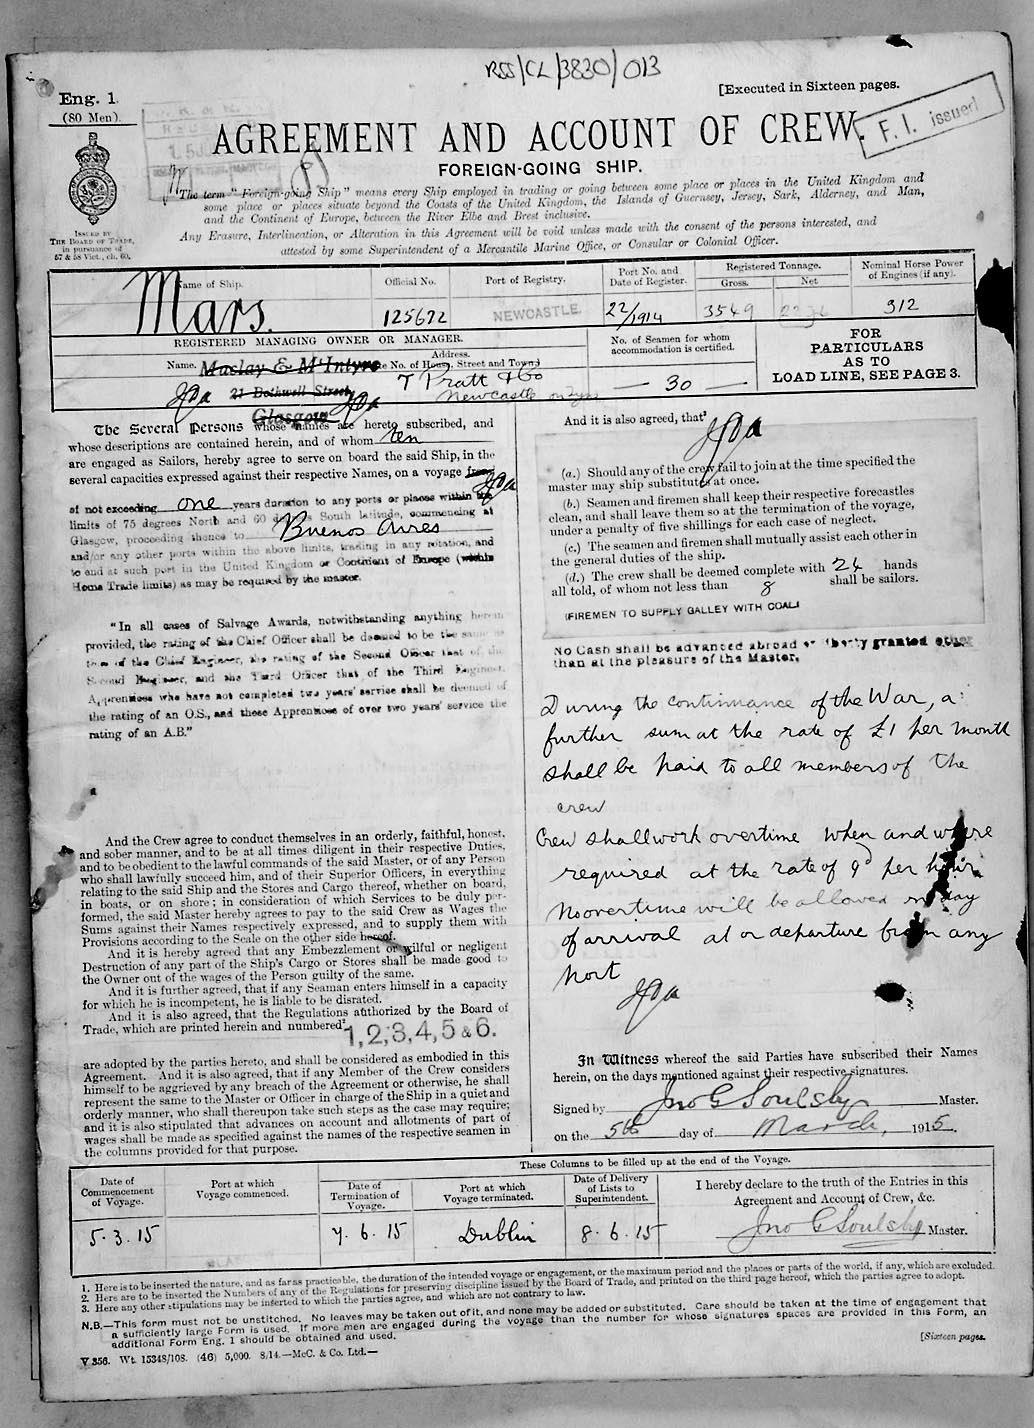 RSS/CL/3830/013
Eng. 1.
(80 Men).
[Executed in Sixteen pages.
F. I. issued
AGREEMENT AND ACCOUNT OF CREW.
FOREIGN-GOING SHIP.
The term "Foreign-going Ship" means every Ship employed in trading or going between some place or places in the United Kingdom and
some place or places situate beyond the Coasts of the United Kingdom, the Islands of Guernsey, Jersey, Sark, Alderney, and Man,
and the Continent of Europe, between the River Elbe and Brest inclusive.
Any Erasure, Interlineation, or Alteration in this Agreement will be void unless made with the consent of the persons interested, and
attested by some Superintendent of a Mercantile Marine Office, or Consular or Colonial Officer.
ISSUED BY
THE BOARD OF TRADE,
in pursuance of
57 & 58 Vict., ch. 60.
Name of Ship.
Official No.
Port of Registry.
Port No. and
Date of Register.
Registered Tonnage.
Gross.
Net
Nominal Horse Power
of Engines (if any).
Mars.
125672
NEWCASTLE
22/1914
3549
312
REGISTERED MANAGING OWNER OR MANAGER.
Name.
Address.
(State No. of House, Street and Town)
Maclay & McIntyre
21 Bothwell Street,
Glasgow
T Pratt & Co
Newcastle on Tyne
No. of Seamen for whom
accommodation is certified.
30
FOR
PARTICULARS
AS TO
LOAD LINE, SEE PAGE 3.
The Several Persons whose names are hereto subscribed, and
whose descriptions are contained herein, and of whom ten
are engaged as Sailors, hereby agree to serve on board the said Ship, in the
several capacities expressed against their respective Names, on a voyage from
of not exceeding one years duration to any ports or places within the
limits of 75 degrees North and 60 degrees South latitude, commencing at
Glasgow, proceeding thence to Buenos Aires
and/or any other ports within the above limits, trading in any rotation, and
to end at such port in the United Kingdom or Continent of Europe (within
Home Trade limits) as may be required by the master.
"In all cases of Salvage Awards, notwithstanding anything herein
provided, the rating of the Chief Officer shall be deemed to be the same as
that of the Chief Engineer, the rating of the Second Officer that of the
Second Engineer, and the Third Officer that of the Third Engineer,
Apprentices who have not completed two years' service shall be deemed of
the rating of an O.S., and these Apprentices of over two years' service the
rating of an A.B."
And the Crew agree to conduct themselves in an orderly, faithful, honest,
and sober manner, and to be at all times diligent in their respective Duties,
and to be obedient to the lawful commands of the said Master, or of any Person
who shall lawfully succeed him, and of their Superior Officers, in everything
relating to the said Ship and the Stores and Cargo thereof, whether on board,
in boats, or on shore; in consideration of which Services to be duly per-
formed, the said Master hereby agrees to pay to the said Crew as Wages the
Sums against their Names respectively expressed, and to supply them with
Provisions according to the Scale on the other side hereof.
And it is hereby agreed that any Embezzlement or wilful or negligent
Destruction of any part of the Ship's Cargo or Stores shall be made good to
the Owner out of the wages of the Person guilty of the same.
And it is further agreed, that if any Seaman enters himself in a capacity
for which he is incompetent, he is liable to be disrated.
And it is also agreed, that the Regulations authorized by the Board of
Trade, which are printed herein and numbered² 1,2,3,4,5 & 6.
are adopted by the parties hereto, and shall be considered as embodied in this
Agreement. And it is also agreed, that if any Member of the Crew considers
himself to be aggrieved by any breach of the Agreement or otherwise, he shall
represent the same to the Master or Officer in charge of the Ship in a quiet and
orderly manner, who shall thereupon take such steps as the case may require;
and it is also stipulated that advances on account and allotments of part of
wages shall be made as specified against the names of the respective seamen in
the columns provided for that purpose.
And it is also agreed, that³
(a.) Should any of the crew fail to join at the time specified the
master may ship substitutes at once.
(b.) Seamen and firemen shall keep their respective forecastles
clean, and shall leave them so at the termination of the voyage,
under a penalty of five shillings for each case of neglect.
(c.) The seamen and firemen shall mutually assist each other in
the general duties of the ship.
(d.) The crew shall be deemed complete with 24 hands
all told, of whom not less than 8 shall be sailors.
(FIREMEN TO SUPPLY GALLEY WITH COAL)
No Cash shall be advanced abroad or liberty granted other
than at the pleasure of the Master.
During the continuance of the War, a
further sum at the rate of £1 per month
shall be paid to all members of the
crew
Crew shall work overtime when and where
required at the rate of 9d per hour.
No overtime will be allowed on day
of arrival at or departure from any
port
In Witness whereof the said Parties have subscribed their Names
herein, on the days mentioned against their respective signatures.
Signed by Jno G Soulsby Master.
on the 5th day of March, 1915.
These Columns to be filled up at the end of the Voyage.
Date of
Commencement
of Voyage.
Port at which
Voyage commenced.
Date of
Termination of
Voyage.
Port at which
Voyage terminated.
Date of Delivery
of Lists to
Superintendent.
I hereby declare to the truth of the Entries in this
Agreement and Account of Crew, &c.
5.3.15
7.6.15
Dublin
8.6.15
Jno G Soulsby Master.
1. Here is to be inserted the nature, and as far as practicable, the duration of the intended voyage or engagement, or the maximum period and the places or parts of the world, if any, which are excluded.
2. Here are to be inserted the Numbers of any of the Regulations for preserving discipline issued by the Board of Trade, and printed on the third page hereof, which the parties agree to adopt.
3. Here any other stipulations may be inserted to which the parties agree, and which are not contrary to law.
N.B.—This form must not be unstitched. No leaves may be taken out of it, and none may be added or substituted. Care should be taken at the time of engagement that
a sufficiently large Form is used. If more men are engaged during the voyage than the number for whose signatures spaces are provided in this Form, an
additional Form Eng. 1 should be obtained and used.
V 356. Wt. 15348/108. (46) 5,000. 8/14.—McC. & Co. Ltd.—
[Sixteen pages.